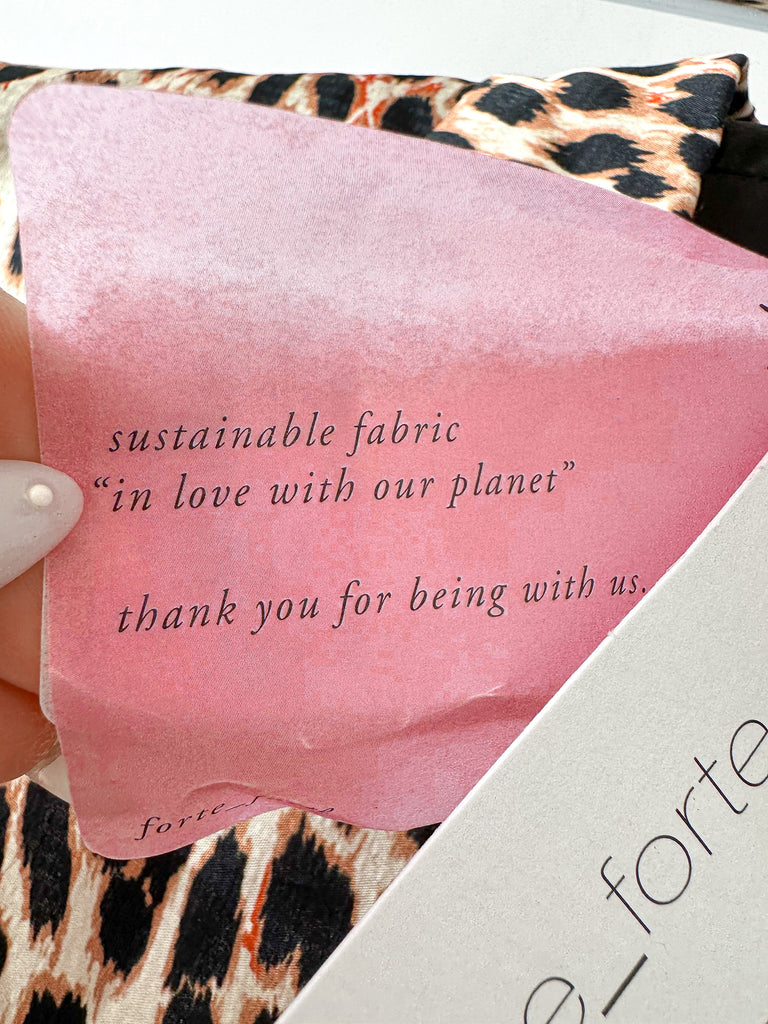 sustainable fabric
“in love with our planet”
thank you for being with us.
forte_
e_forte